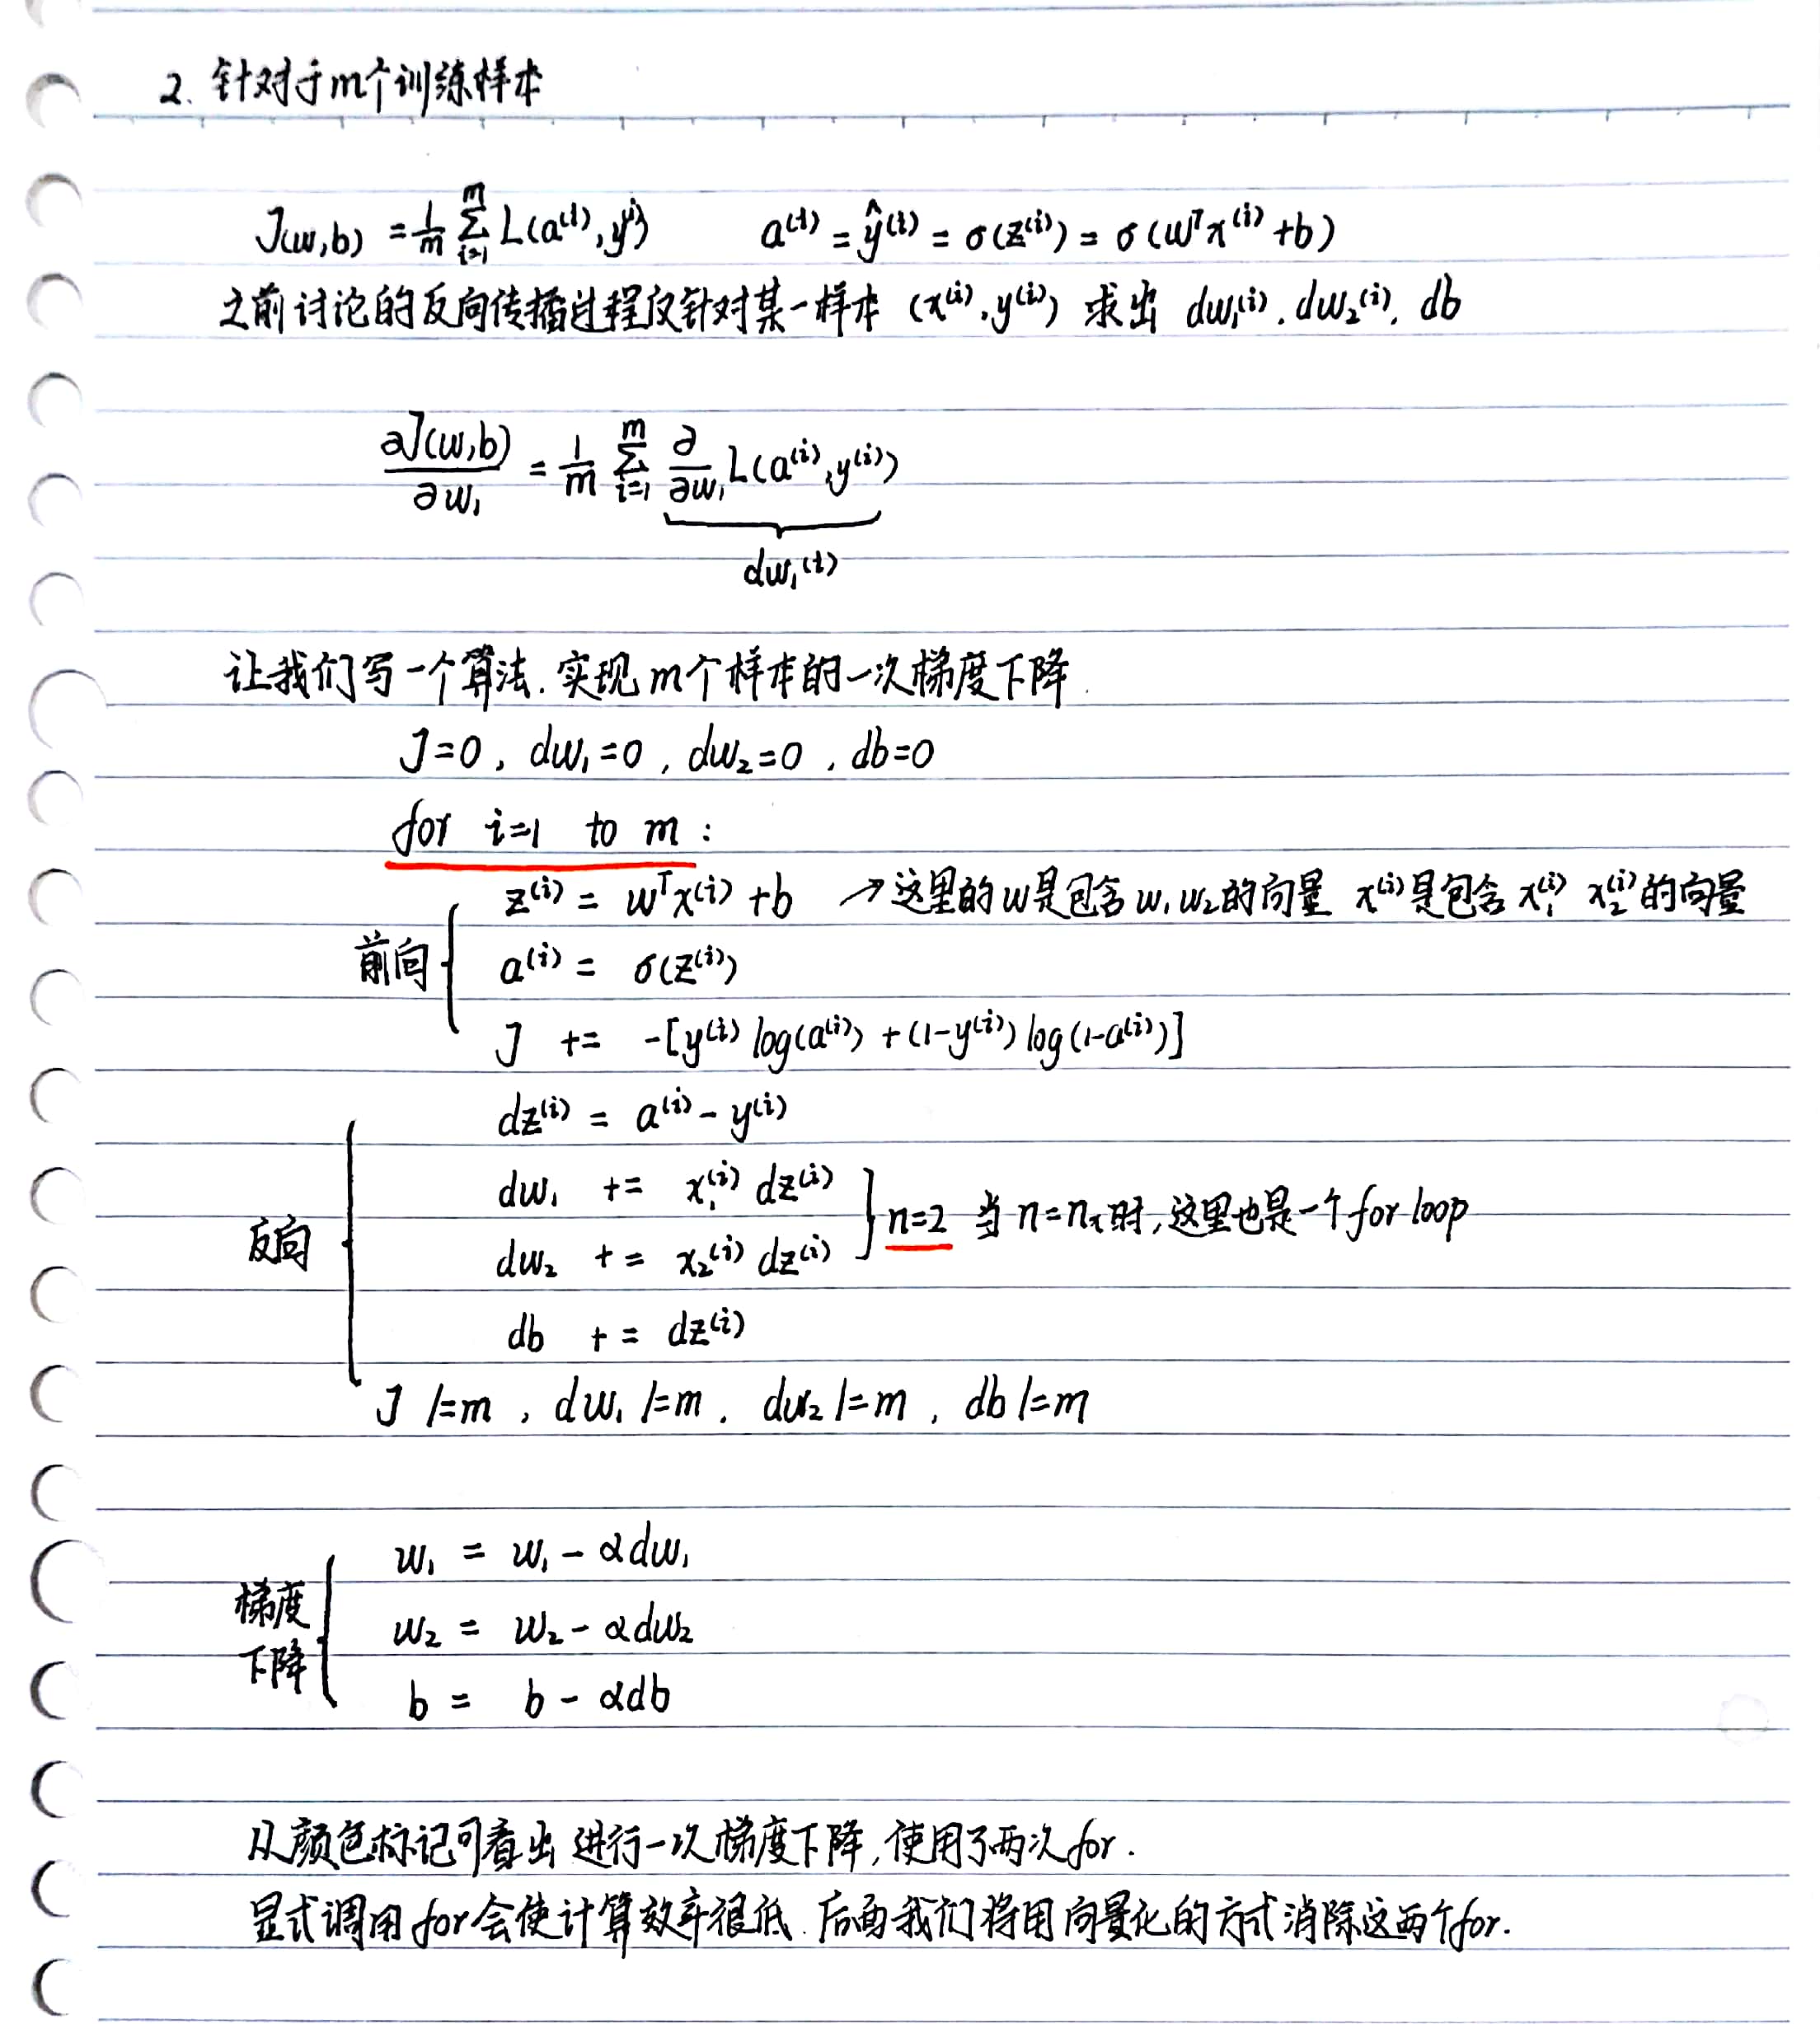 2. 针对于m个训练样本
J(w,b) = 1/m Σ_{i=1}^{m} L(a^{(i)}, y^{i)}) a^{(i)} = ŷ^{(i)} = σ(z^{(i)}) = σ(w^T x^{(i)} + b)
之前讨论的反向传播过程仅针对某一样本 (x^{(i)}, y^{(i)}) 求出 dw₁^{(i)}. dw₂^{(i)}. db
∂J(w,b)/∂w₁ = 1/m Σ_{i=1}^{m} ∂/∂w₁ L(a^{(i)}, y^{(i)})
dw₁^{(i)}
让我们写一个算法. 实现m个样本的一次梯度下降.
J=0, dw₁=0, dw₂=0, db=0
for i=1 to m:
z^{(i)} = w^T x^{(i)} + b → 这里的w是包含w₁ w₂的向量 x^{(i)}是包含x₁^{(i)} x₂^{(i)}的向量
前向 a^{(i)} = σ(z^{(i)})
J += -[y^{(i)} log(a^{(i)}) + (1-y^{(i)}) log(1-a^{(i)})]
dz^{(i)} = a^{(i)} - y^{(i)}
dw₁ += x₁^{(i)} dz^{(i)}
反向 n=2 当 n=nₓ时, 这里也是一个for loop
dw₂ += x₂^{(i)} dz^{(i)}
db += dz^{(i)}
J /=m, dw₁ /=m, dw₂ /=m, db /=m
w₁ = w₁ - αdw₁
梯度
w₂ = w₂ - αdw₂
下降
b = b - αdb
从颜色标记可看出 进行一次梯度下降, 使用了两次for.
显式调用for会使计算效率很低. 后面我们将用向量化的方式消除这两个for.